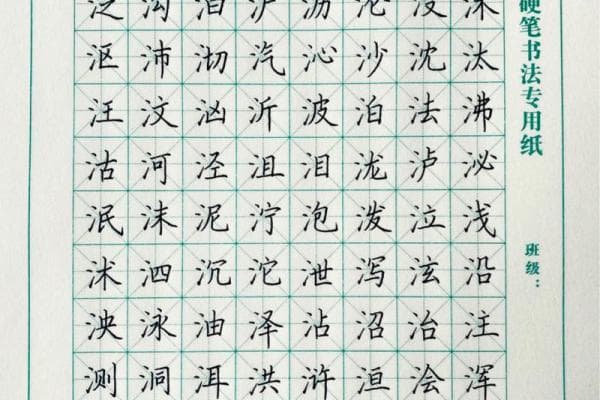 沟沪沥沦没
沤沛沏汽沁沙沈汰
汪汶汹沂波泊法沸
沽河泾沮泪泷泸泌
泯沫泥泞泡泼泣浅
沭泗沉沱泄泻泫沿
泱泳油泽沾沼治注
测洞洱洪浒洹浍浑
硬笔书法专用纸
班级：